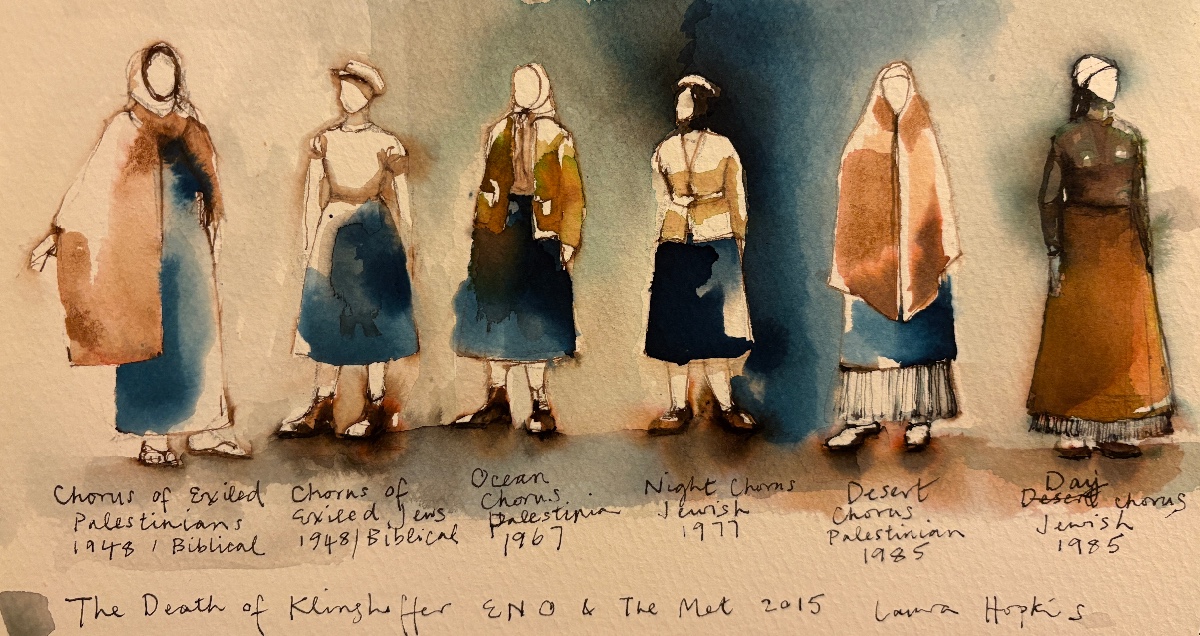 Chorus of Exiled
Palestinians
1948 / Biblical
Chorus of
Exiled Jews
1948/Biblical
Ocean
Chorus
Palestinian
1967
Night Chorus
Jewish
1977
Desert
Chorus
Palestinian
1985
Day
Desert chorus
Jewish
1985
The Death of Klinghoffer ENO & The Met 2015 Laura Hopkins